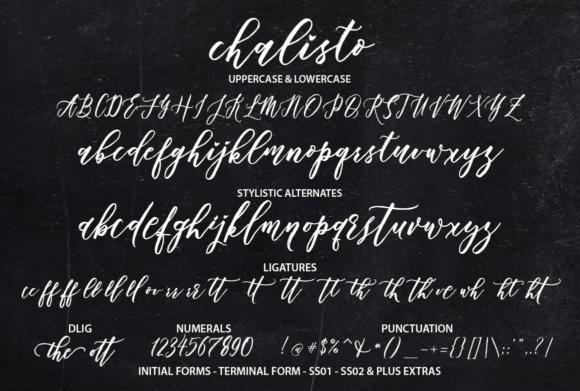 chalisto
UPPERCASE & LOWERCASE
ABCDEFGHIJKLMNOPQRSTUVWXYZ
abcdefghijklmnopqrstuvwxyz
STYLISTIC ALTERNATES
abcdefghijklmnopqrstuvwxyz
LIGATURES
cc ff ff ll ll ll ll ov rr rr tt tt tt tt th th th ve wh ht ht
DLIG NUMERALS PUNCTUATION
the ott 1234567890 !@#$%^&*()_-+={}[]|\:;'",.?/
INITIAL FORMS - TERMINAL FORM - SS01 - SS02 & PLUS EXTRAS